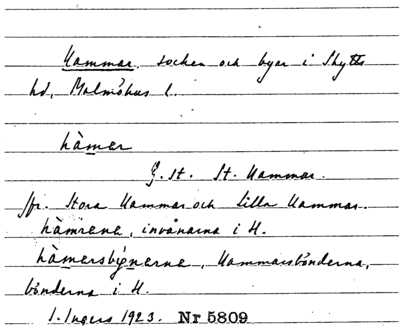 Hammar, socken och byar i Skytts
hd, Malmöhus l.
hàmer
G. st. St. Hammar.
ffr. Stora Hammar och Lilla Hammar.
hàmrene, invånarna i H.
hàmersbýnerne, Hammarsbönderna,
bönderna i H.
I. Ingers 1923. Nr 5809